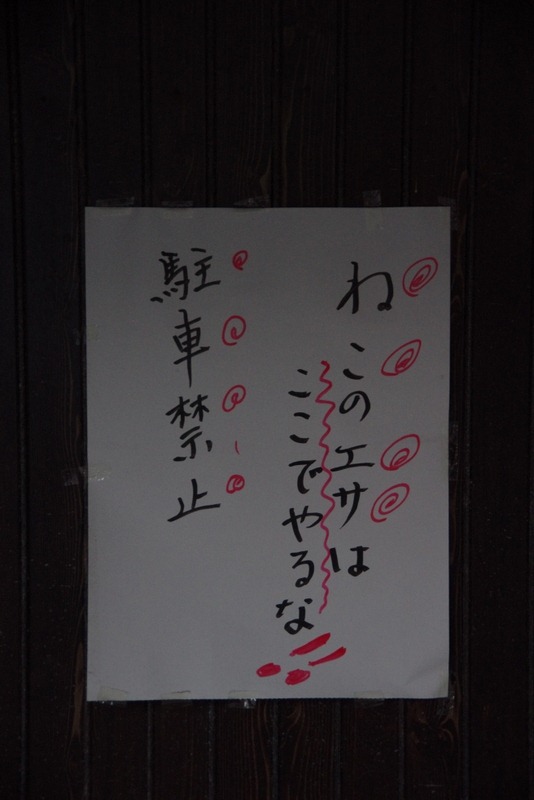 ねこのエサは
ここでやるな!!
駐車禁止